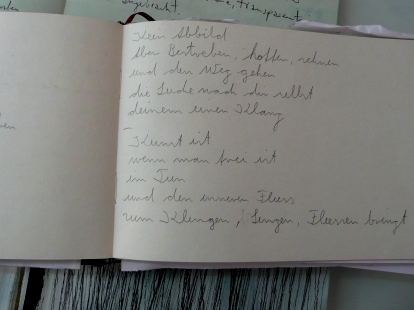 transparent
Kein Abbild
Aber Bestreben, hoffen, sehnen
und den Weg gehen
die Suche nach dir selbst
deinem einen Klang
–
Kunst ist
wenn man frei ist
im Tun
und den inneren Fluss
zum Klingen, Singen, Fliessen bringt